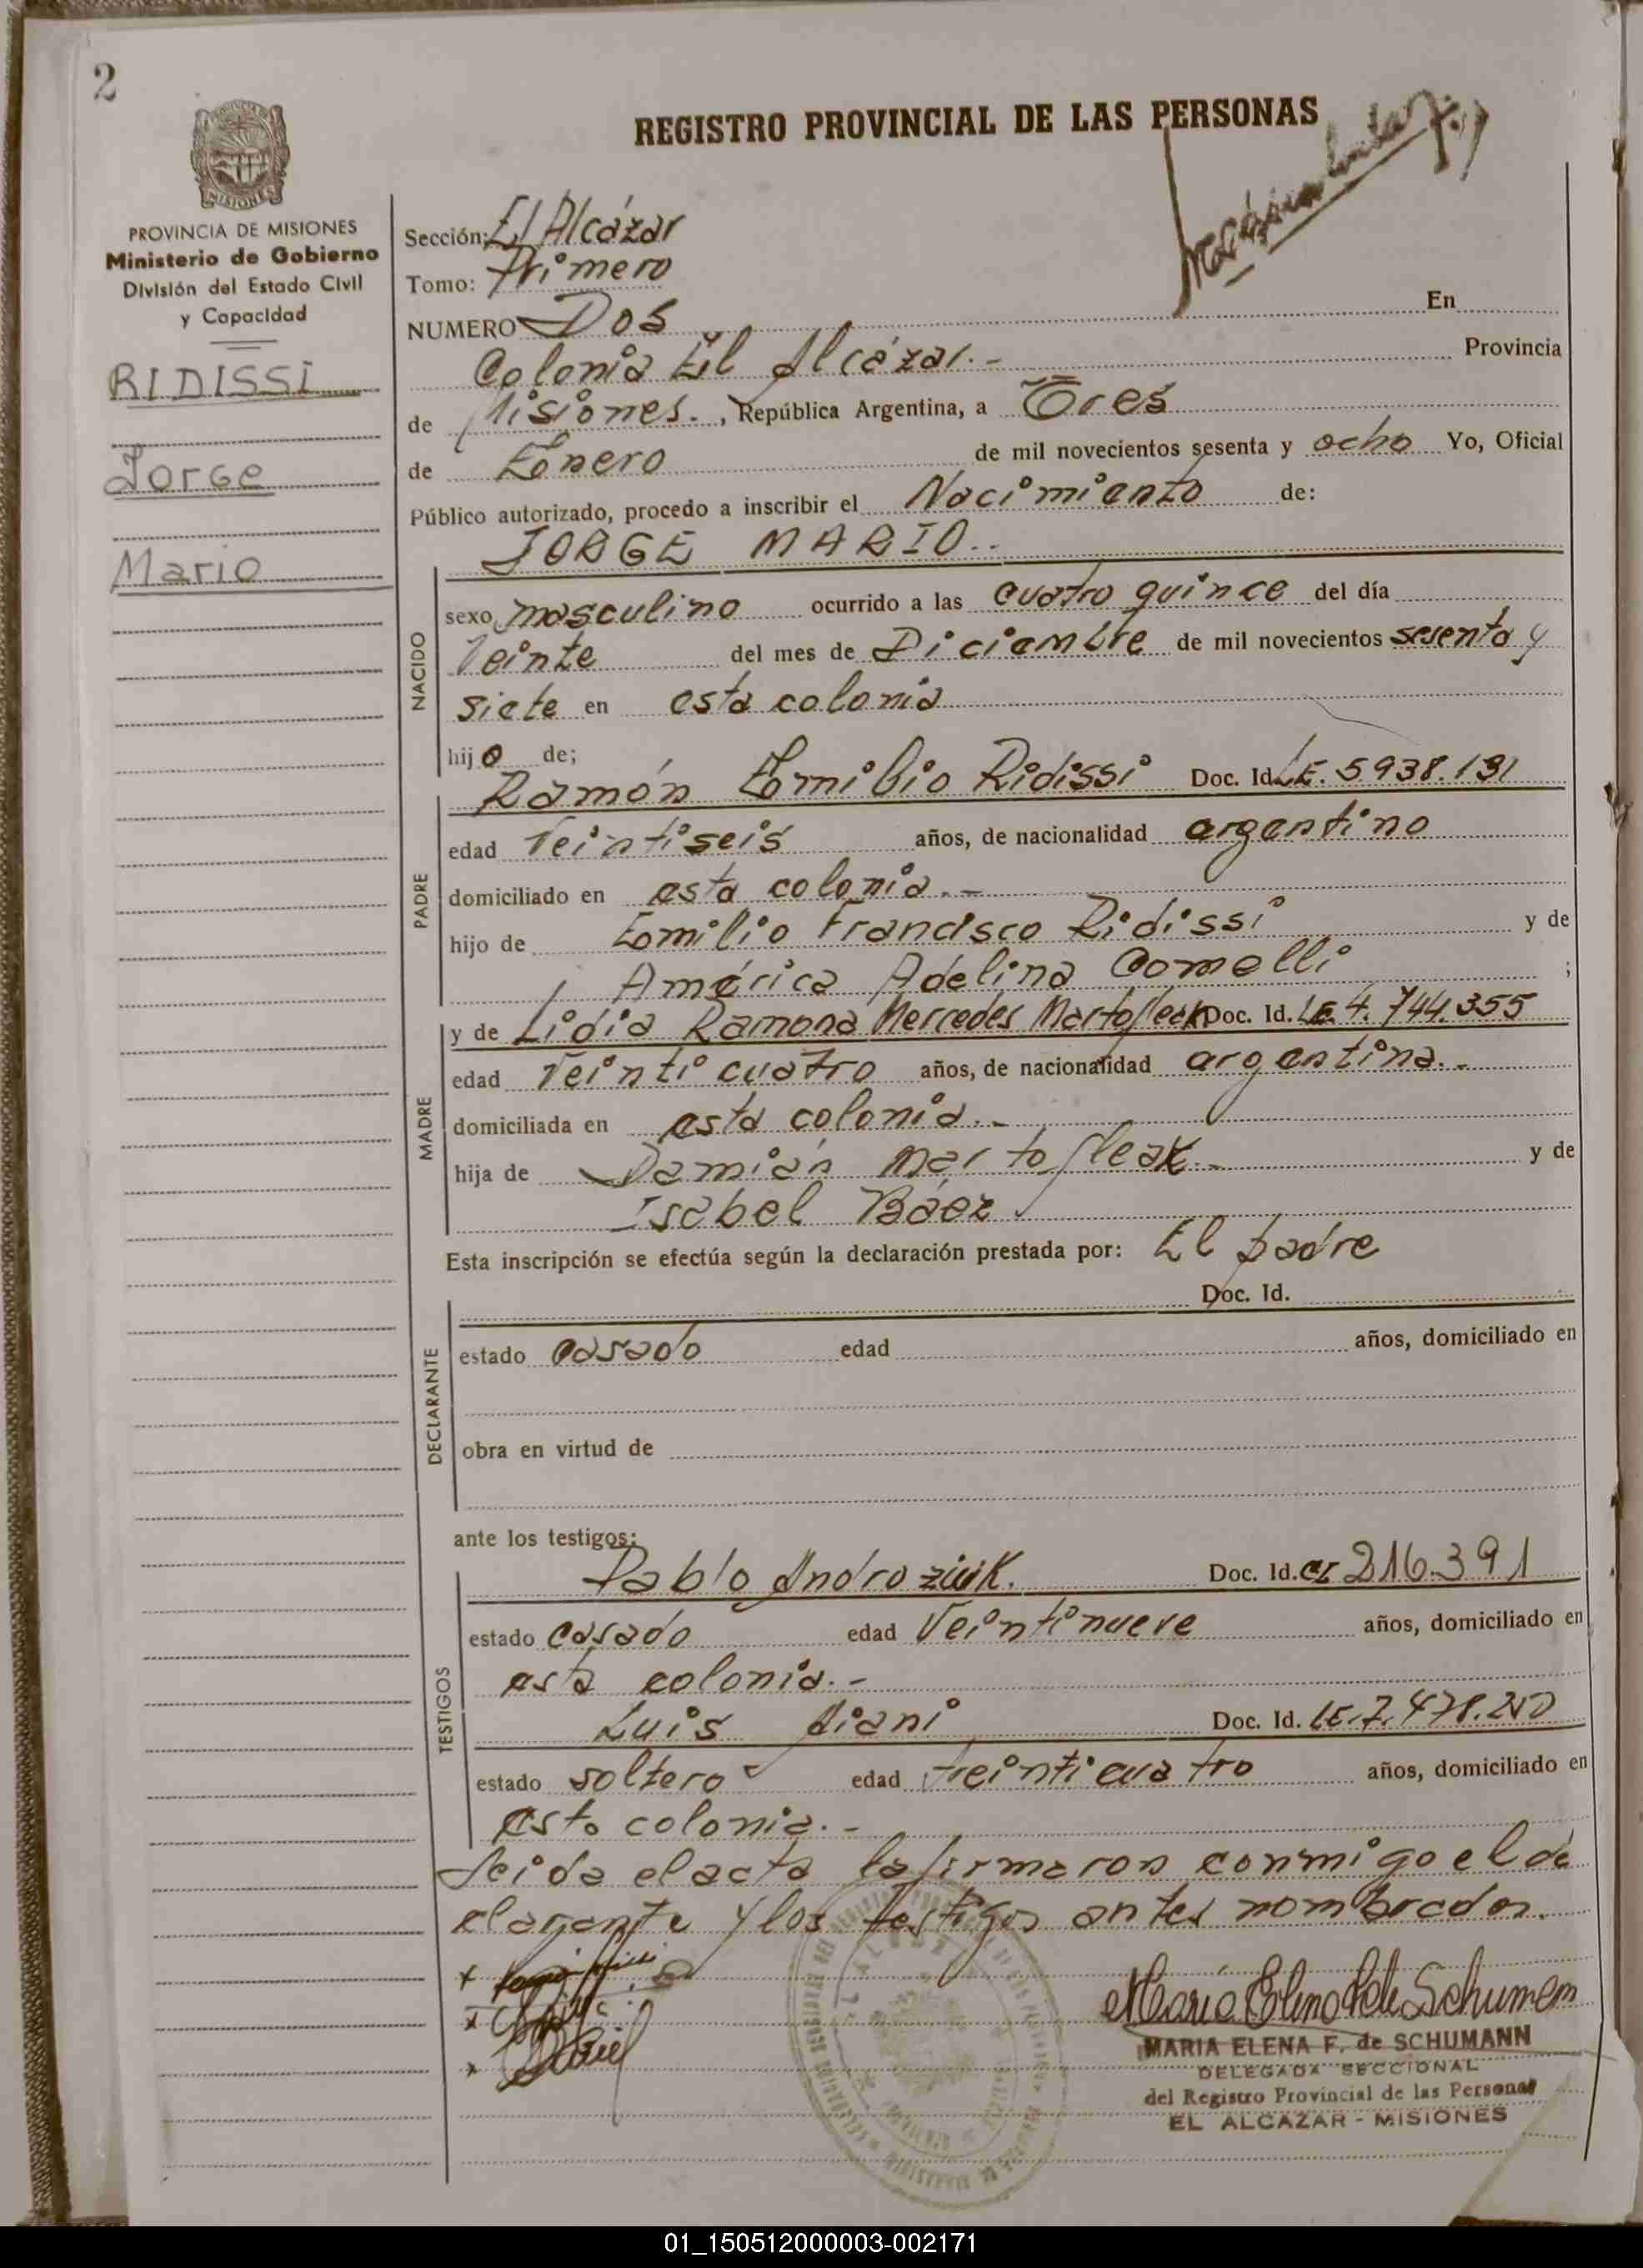 2
REGISTRO PROVINCIAL DE LAS PERSONAS
MISIONES
PROVINCIA DE MISIONES
Ministerio de Gobierno
División del Estado Civil
y Capacidad
RIDISSI
Jorge
Mario
Sección: El Alcázar
Tomo: Primero
NUMERO Dos En
Colonia El Alcázar.- Provincia
de Misiones., República Argentina, a Tres
de Enero de mil novecientos sesenta y ocho Yo, Oficial
Público autorizado, procedo a inscribir el Nacimiento de:
JORGE MARIO..
NACIDO
sexo masculino ocurrido a las cuatro quince del día
Veinte del mes de Diciembre de mil novecientos sesenta y
siete en esta colonia
hijo de;
PADRE
Ramón Emilio Ridissi Doc. Id. LE. 5938.131
edad Veintiseis años, de nacionalidad argentino
domiciliado en esta colonia.-
hijo de Emilio Francisco Ridissi y de
América Adelina Comelli ;
MADRE
y de Lidia Ramona Mercedes Martofleak Doc. Id. LE 4.744.355
edad Veinticuatro años, de nacionalidad argentina.-
domiciliada en esta colonia.-
hija de Damián Martofleak.- y de
Isabel Báez
Esta inscripción se efectúa según la declaración prestada por: El padre
DECLARANTE
Doc. Id.
estado casado edad años, domiciliado en
obra en virtud de
ante los testigos:
TESTIGOS
Pablo Androziuk. Doc. Id. CI 216.391
estado casado edad Veintinueve años, domiciliado en
esta colonia.-
Luis Doc. Id. LE.7.478.250
estado soltero edad treinticuatro años, domiciliado en
esta colonia.-
Leida el acta la firmaron conmigo el de
clarante y los testigos antes nombrados.
MARIA ELENA F. de SCHUMANN
DELEGADA SECCIONAL
del Registro Provincial de las Personas
EL ALCAZAR - MISIONES
01_150512000003-002171